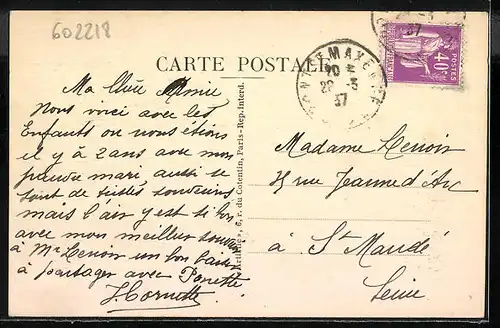 602218
CARTE POSTALE
PONT STE MAXENCE
20 H
28 -5
37
37
POSTES
40c
Ma Chère Amie
Nous voici avec les
Enfants ou nous étions
il y à 2 ans avec mon
pauvre mari aussi se
sont de tristes souvenirs
mais l'air y est si bon
avec mon meilleur souvenir
à Mr Lenoir un bon baiser
à partager avec Ponette
J. Cornette
6, r. du Cotentin, Paris-Rep. Interd.
Madame Lenoir
rue Jeanne d'Arc
à St Mandé
Seine